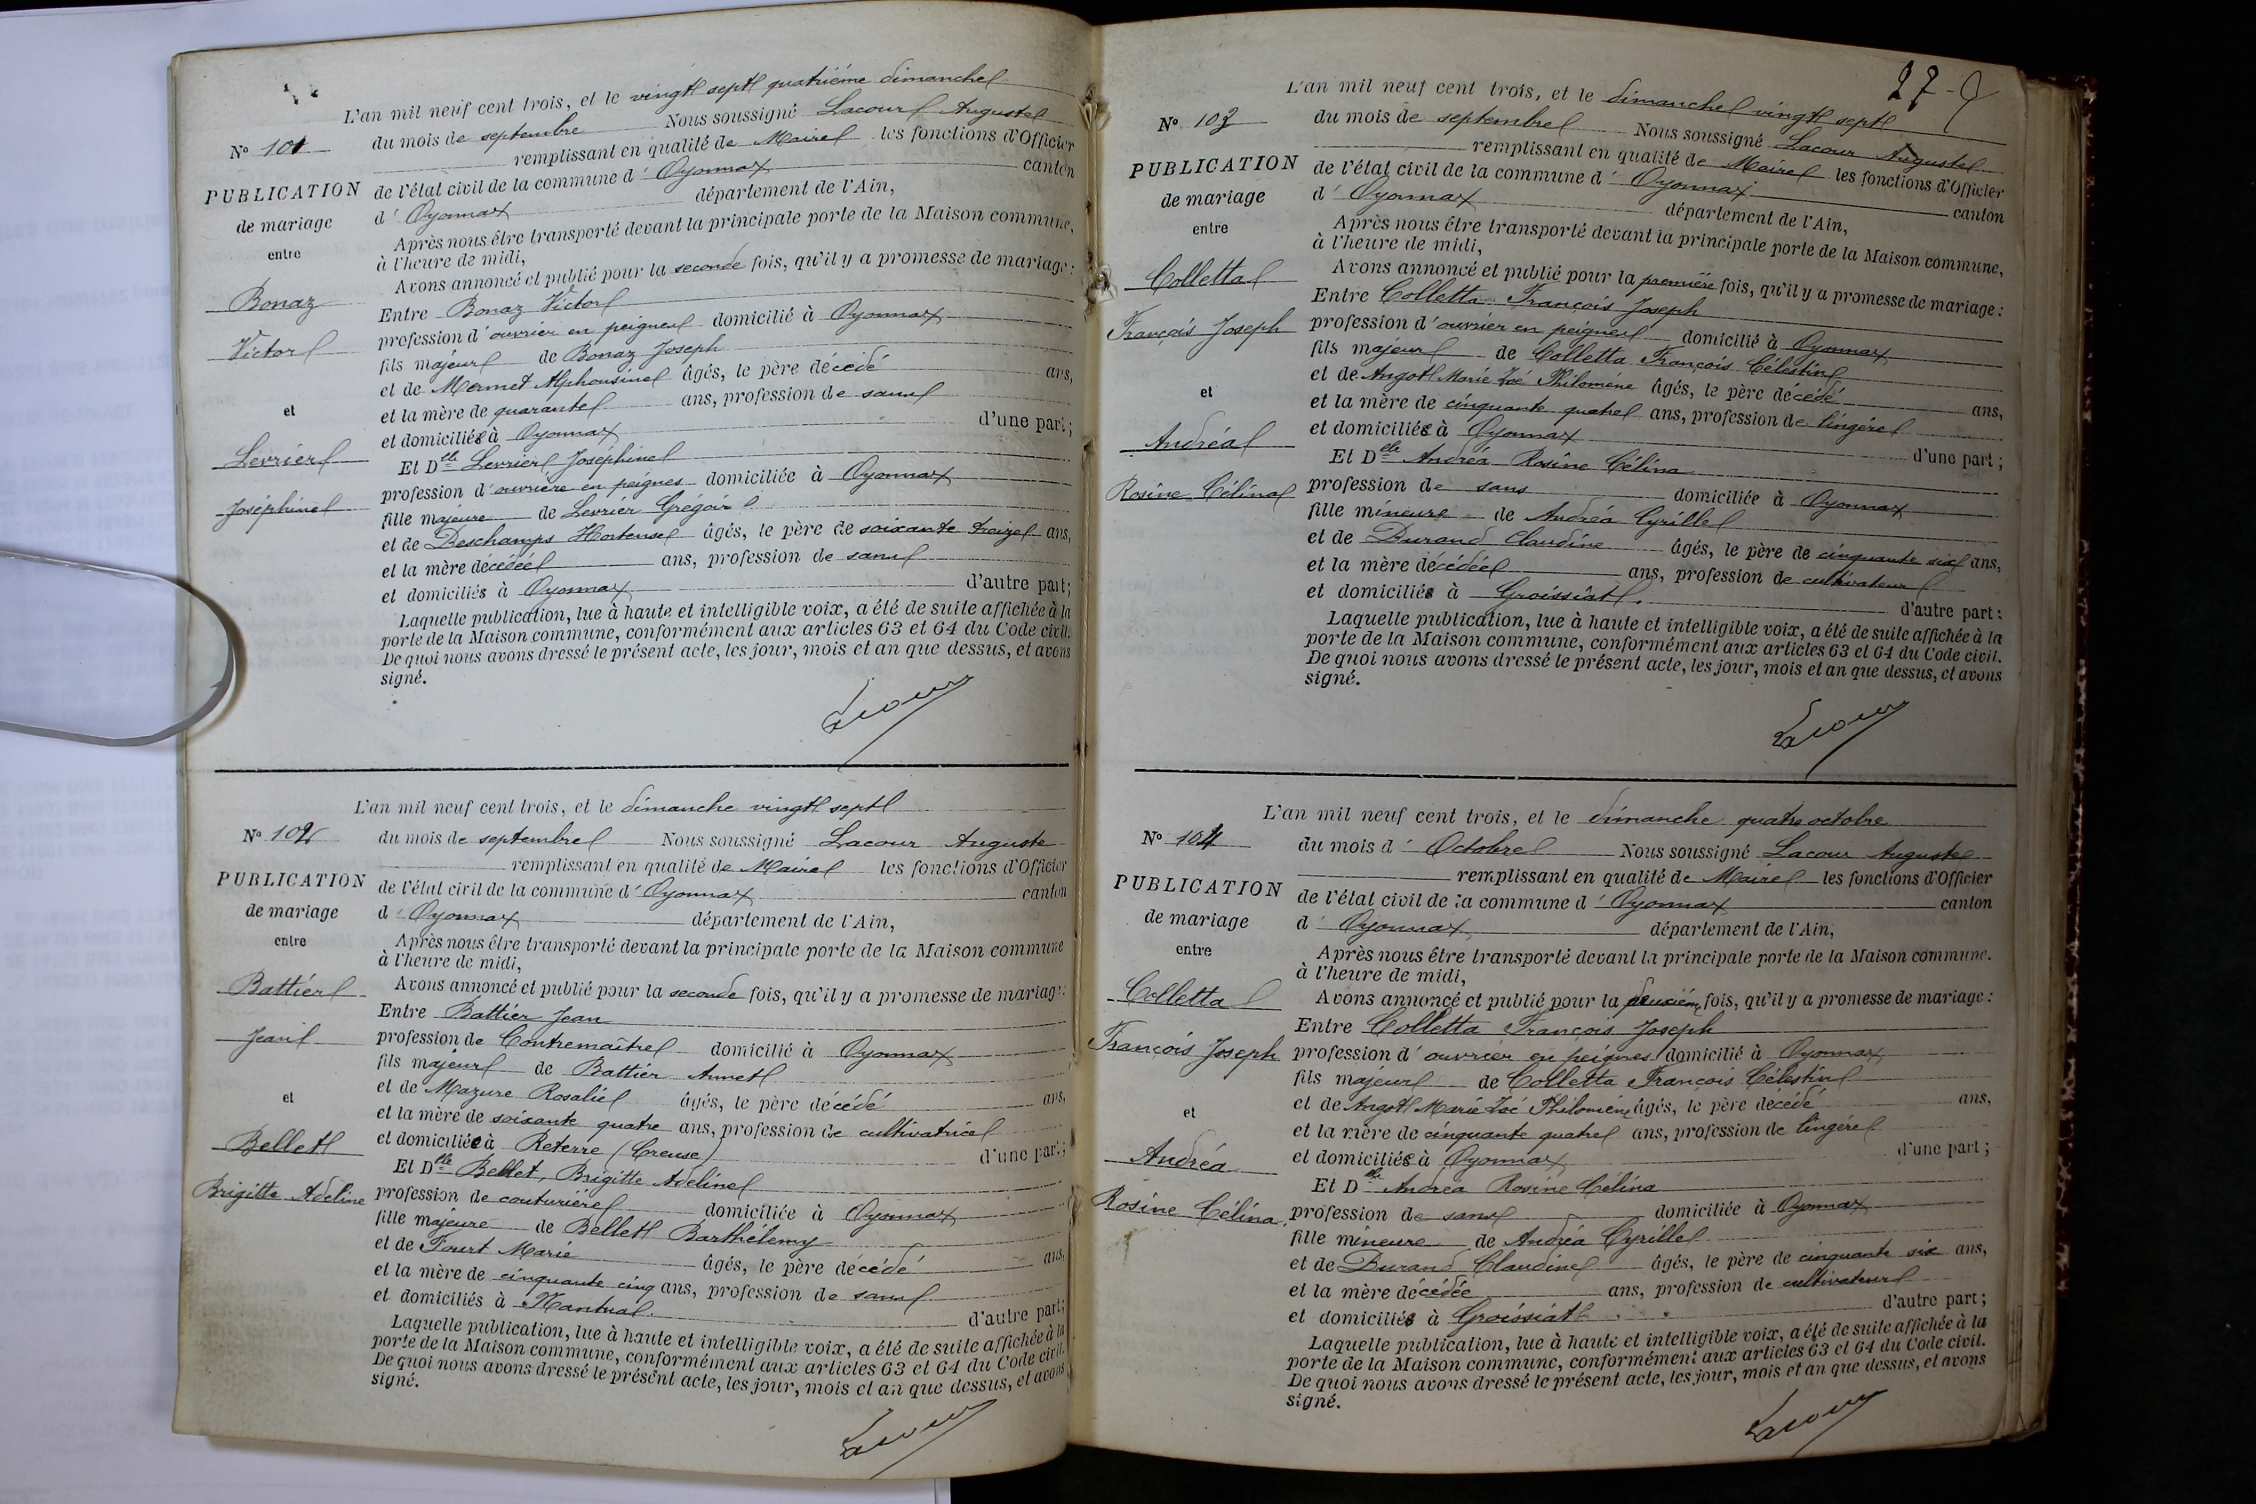 L'an mil neuf cent trois, et le vingt sept quatrième dimanche
N° 101 du mois de septembre Nous soussigné Lacour Auguste
remplissant en qualité de Maire les fonctions d'Officier
PUBLICATION de l'état civil de la commune d' Oyonnax canton
de mariage d' Oyonnax département de l'Ain,
entre Après nous être transporté devant la principale porte de la Maison commune,
à l'heure de midi,
Avons annoncé et publié pour la seconde fois, qu'il y a promesse de mariage :
Bonaz Entre Bonaz Victor
Victor profession d'ouvrier en peignes domicilié à Oyonnax
fils majeur de Bonaz Joseph
et de Mermet Alphonsine âgés, le père décédé ans,
et et la mère de quarante ans, profession de sans
et domiciliée à Oyonnax d'une part ;
Levrier Et Dlle Levrier Joséphine
Joséphine profession d'ouvrière en peignes domiciliée à Oyonnax
fille majeure de Levrier Grégoire
et de Deschamps Hortense âgés, le père de soixante treize ans,
et la mère décédée ans, profession de sans
et domiciliés à Oyonnax d'autre part ;
Laquelle publication, lue à haute et intelligible voix, a été de suite affichée à la
porte de la Maison commune, conformément aux articles 63 et 64 du Code civil.
De quoi nous avons dressé le présent acte, les jour, mois et an que dessus, et avons
signé.
Lacour
L'an mil neuf cent trois, et le dimanche vingt sept
N° 102 du mois de septembre Nous soussigné Lacour Auguste
remplissant en qualité de Maire les fonctions d'Officier
PUBLICATION de l'état civil de la commune d' Oyonnax canton
de mariage d' Oyonnax département de l'Ain,
entre Après nous être transporté devant la principale porte de la Maison commune
à l'heure de midi,
Battier Avons annoncé et publié pour la seconde fois, qu'il y a promesse de mariage :
Entre Battier Jean
Jean profession de Contremaître domicilié à Oyonnax
fils majeur de Battier Annet
et de Mazure Rosalie âgés, le père décédé ans,
et et la mère de soixante quatre ans, profession de cultivatrice
Bellet et domiciliée à Reterre (Creuse) d'une part ;
Et Dlle Bellet, Brigitte Adeline
Brigitte Adeline profession de couturière domiciliée à Oyonnax
fille majeure de Bellet Barthélemy
et de Fourt Marie âgés, le père décédé ans,
et la mère de cinquante cinq ans, profession de sans
et domiciliés à Nantua d'autre part ;
Laquelle publication, lue à haute et intelligible voix, a été de suite affichée à la
porte de la Maison commune, conformément aux articles 63 et 64 du Code civil.
De quoi nous avons dressé le présent acte, les jour, mois et an que dessus, et avons
signé.
Lacour
27
L'an mil neuf cent trois, et le dimanche vingt sept
N° 103 du mois de septembre Nous soussigné Lacour Auguste
remplissant en qualité de Maire les fonctions d'Officier
PUBLICATION de l'état civil de la commune d' Oyonnax canton
de mariage d' Oyonnax département de l'Ain,
entre Après nous être transporté devant la principale porte de la Maison commune,
à l'heure de midi,
Colletta Avons annoncé et publié pour la première fois, qu'il y a promesse de mariage :
Entre Colletta François Joseph
François Joseph profession d'ouvrier en peignes domicilié à Oyonnax
fils majeur de Colletta François Célestin
et de Angot Marie Zoé Philomène âgés, le père décédé ans,
et et la mère de cinquante quatre ans, profession de lingère
Andréa et domiciliée à Oyonnax d'une part ;
Et Dlle Andréa Rosine Célina
Rosine Célina profession de sans domiciliée à Oyonnax
fille mineure de Andréa Cyrille
et de Durand Claudine âgés, le père de cinquante six ans,
et la mère décédée ans, profession de cultivateur
et domiciliés à Groissiat. d'autre part ;
Laquelle publication, lue à haute et intelligible voix, a été de suite affichée à la
porte de la Maison commune, conformément aux articles 63 et 64 du Code civil.
De quoi nous avons dressé le présent acte, les jour, mois et an que dessus, et avons
signé.
Lacour
L'an mil neuf cent trois, et le dimanche quatre octobre
N° 104 du mois d' Octobre Nous soussigné Lacour Auguste
remplissant en qualité de Maire les fonctions d'Officier
PUBLICATION de l'état civil de la commune d' Oyonnax canton
de mariage d' Oyonnax département de l'Ain,
entre Après nous être transporté devant la principale porte de la Maison commune.
à l'heure de midi,
Colletta Avons annoncé et publié pour la deuxième fois, qu'il y a promesse de mariage :
Entre Colletta François Joseph
François Joseph profession d'ouvrier en peignes domicilié à Oyonnax
fils majeur de Colletta François Célestin
et de Angot Marie Zoé Philomène âgés, le père décédé ans,
et et la mère de cinquante quatre ans, profession de lingère
Andréa et domiciliée à Oyonnax d'une part ;
Et Dlle Andréa Rosine Célina
Rosine Célina profession de sans domiciliée à Oyonnax
fille mineure de Andréa Cyrille
et de Durand Claudine âgés, le père de cinquante six ans,
et la mère décédée ans, profession de cultivateur
et domiciliés à Groissiat d'autre part ;
Laquelle publication, lue à haute et intelligible voix, a été de suite affichée à la
porte de la Maison commune, conformément aux articles 63 et 64 du Code civil.
De quoi nous avons dressé le présent acte, les jour, mois et an que dessus, et avons
signé.
Lacour